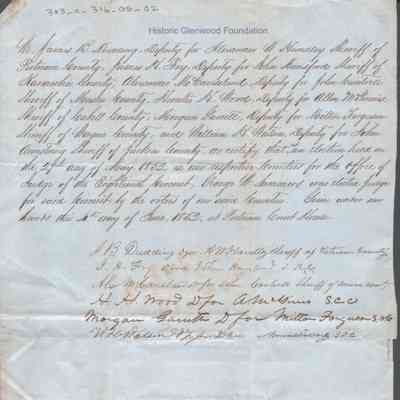 303-C-316-05-02
Historic Glenwood Foundation
We James B. Dudding Deputy for Alexander W. Handley Sheriff of
Putnam County, James H. Fry, Deputy for John Hansford Sheriff of
Kanawha County, Alexander McCausland Deputy for John
Sheriff of Mason County, H. Wood Deputy for Allen McGinnis
Sheriff of Cabell County, Morgan Garrett, Deputy for Milton Ferguson
Sheriff of Wayne County, and William Deputy for John
Armstrong Sheriff of Jackson County, do certify that an election held on
the 27th day of May 1852, in our respective Counties for the office of
Judge of the Eighteenth Circuit, George W. Summers was elected Judge
for said Circuit by the voters of our said Counties. Given under our
hands this 4th day of June, 1852, at Putnam Court House.
J B Dudding for A W Handley Sheriff of Putnam County
J. H. Fry for John Hansford S.
Alex McCausland for John Sheriff of Mason
H. H. Wood D for A. McGinnis S.C.C
Morgan Garrett D for Milton Ferguson
D for Armstrong S J C